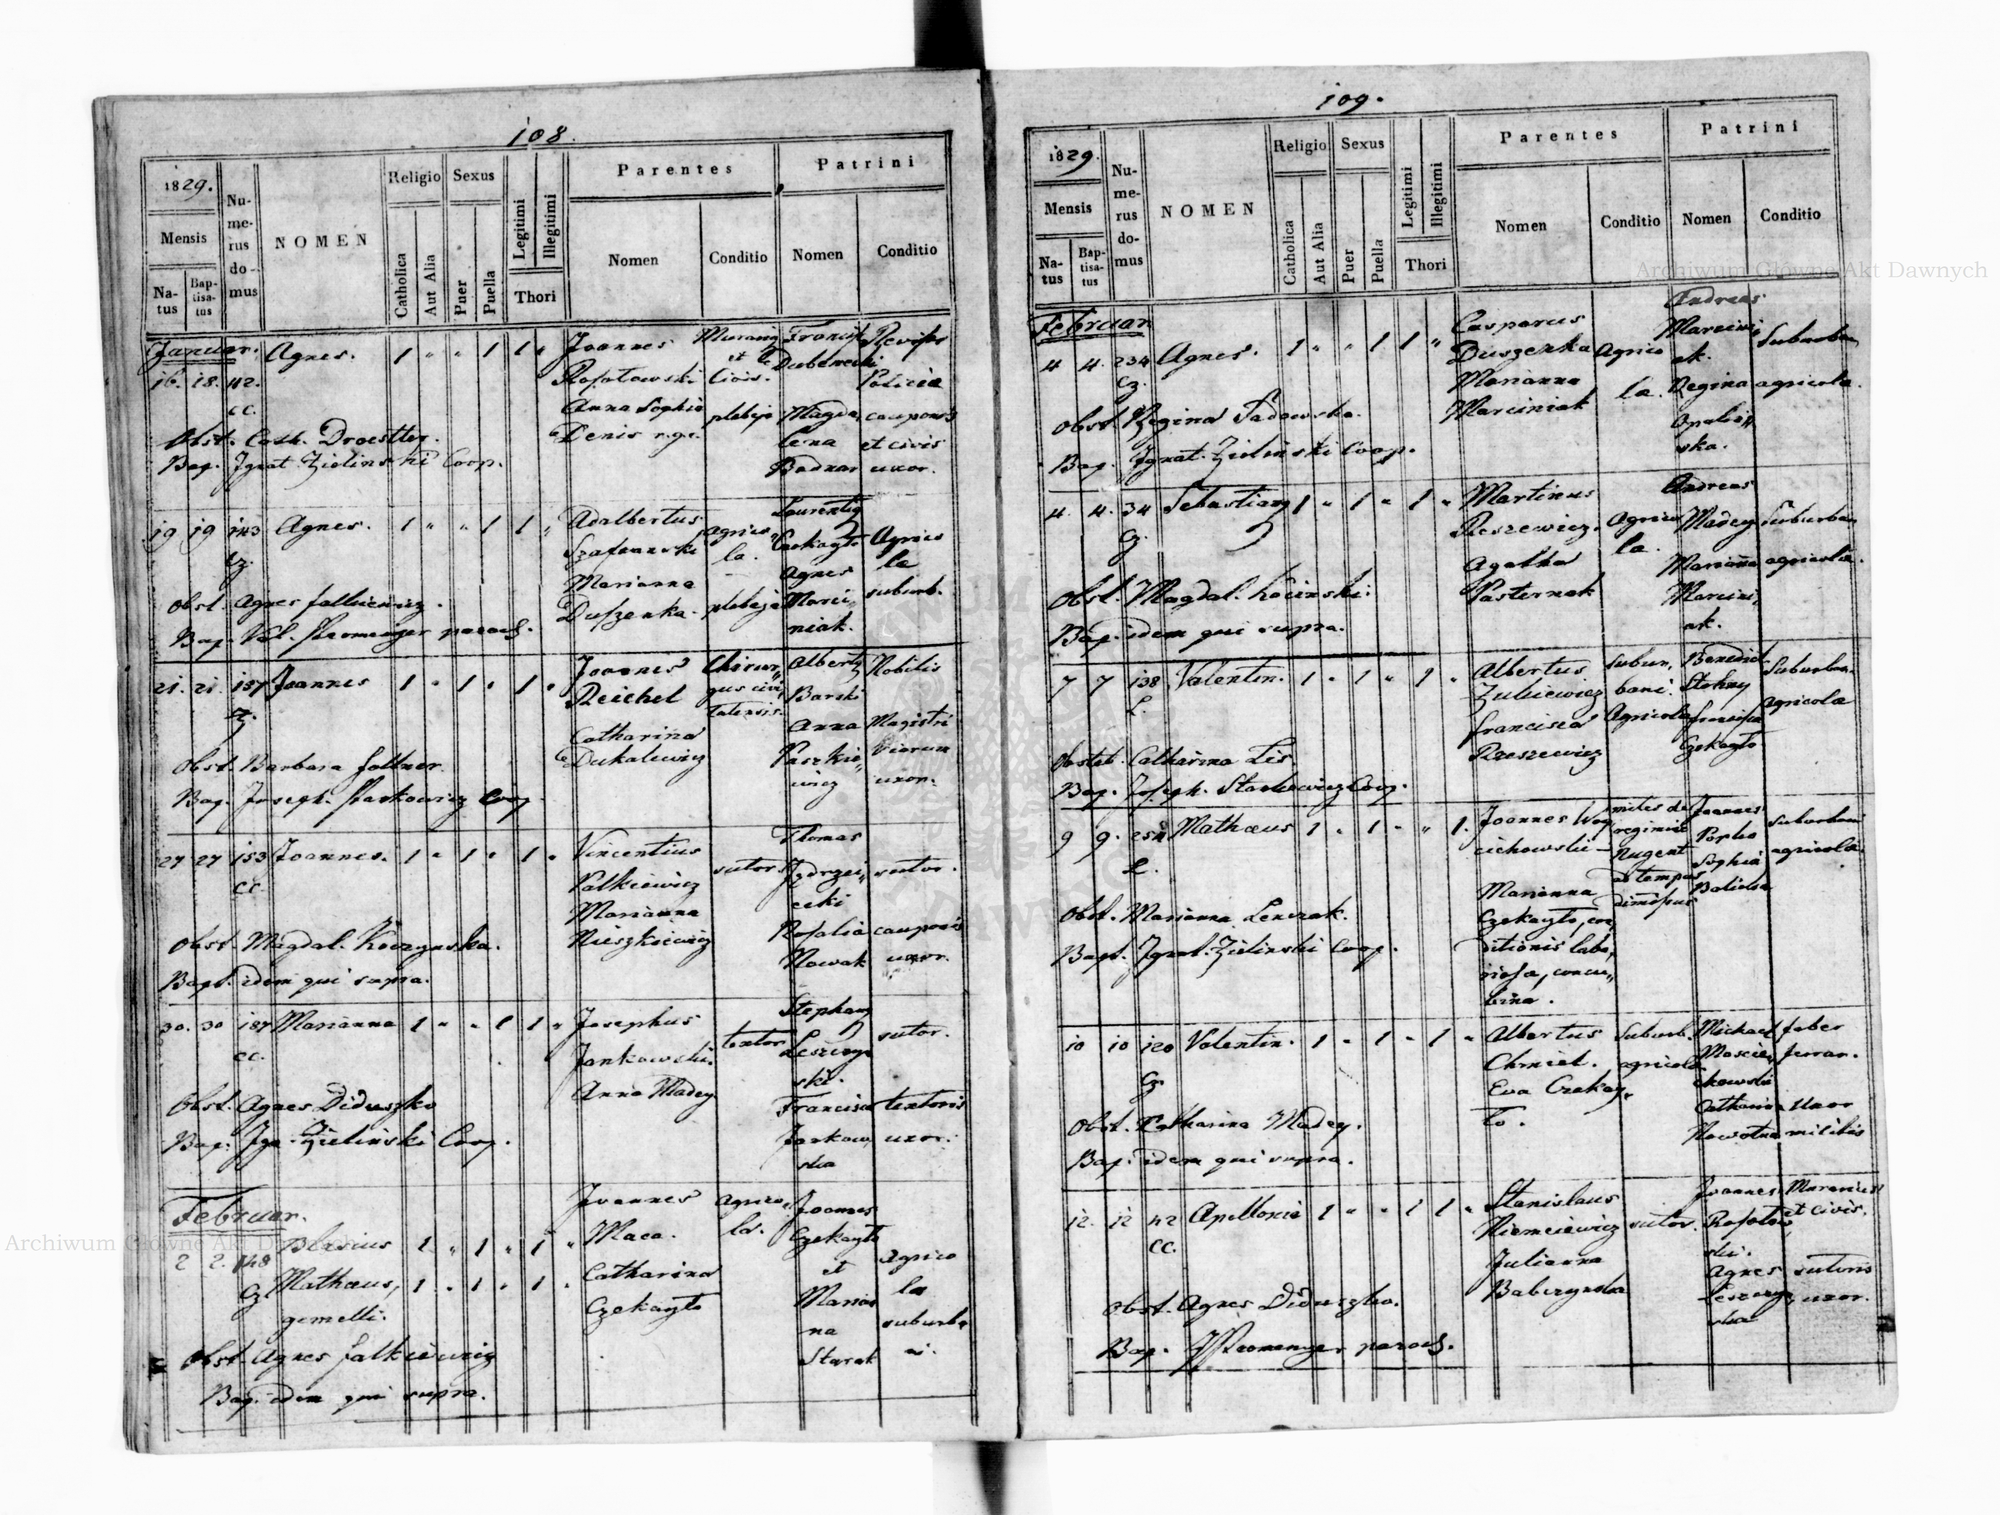 108.
1829.
Mensis
Na-
tus
Bap-
tisa-
tus
Nu-
me-
rus
do-
mus
NOMEN
Religio
Catholica
Aut Alia
Sexus
Puer
Puella
Legitimi
Illegitimi
Thori
Parentes
Nomen
Conditio
Patrini
Nomen
Conditio
Januar.
16. 18. 42. Agnes. 1 " " 1 1 "
cc.
Joannes
Rosolowski
Anna Sophia
Denis r.gr.
et
Civis.
plebeja
Francis
Dubenecki
Magda
lena
Bednar
Policiae
cauponis
et civis
uxor.
Obst. Cath. Droestler.
Bap. Ignat Zielinski Coop.
19 19 143 Agnes. 1 " " 1 1 "
Cz.
Adalbertus
Marianna
Duszenka.
Agrico
la.
plebeja
Laurentig
Czekayto
Agnes
Marci
niak.
Agrico
la
suburb.
Obst. Agnes falkiewicz.
Bap. Val. Stromenger paroch.
21. 21. 187 Joannes 1 " 1 " 1 "
Z.
Joannes
Reichel
Catharina
Dukalewicz
Chirur
gus civi
tatensis.
Albertg
Barski
Anna
Paszkie
wicz
Nobilis
Magistri
Viarum
uxor.
Obst. Barbara foltner.
Bap. Joseph. Starkowicz Coop.
27 27 153 Joannes. 1 " 1 " 1 "
cc.
Vincentius
Falkiewicz
Marianna
Nieszkiewicz
sutor
Thomas
Jędrzei
ecki
Rosalia
Nowak
sutor.
cauponis
uxor.
Obst. Magdal. Koczynska.
Bapt. idem qui supra.
30. 30 187 Marianna 1 " " 1 1 "
cc.
Josephus
Jankowski.
Anna Madey
textor
Stephang
Leszczyn
ski.
Francisca
Jankow
ska
sutor.
textoris
uxor.
Obst. Agnes Diduszko
Bap. Ign. Zieliński Coop.
Februar.
2 2. 148 Blasius 1 " 1 " 1 "
Cz Mathaeus, 1 " 1 " 1 "
gemelli.
Joannes
Maca.
Catharina
Czekayto
Agrico
la.
Joannes
Czekayto
et
Marian
na
Starak
Agrico
la
suburba
Obst. Agnes falkiewicz
Bap. idem qui supra.
109.
1829.
Mensis
Na-
tus
Bap-
tisa-
tus
Nu-
me-
rus
do-
mus
NOMEN
Religio
Catholica
Aut Alia
Sexus
Puer
Puella
Legitimi
Illegitimi
Thori
Parentes
Nomen
Conditio
Patrini
Nomen
Conditio
Februar
4 4. 234 Agnes. 1 " " 1 1 "
Cz.
Casparus
Duszenka
Marianna
Marciniak
Agrico
la.
Andreas
Marcini
ak.
Regina
Opaliń
ska.
Suburban
agricola.
Obst. Regina Sadowska.
Bap. Ignat. Zielinski Coop.
4. 4. 34 Sebastiang 1 " 1 " 1 "
Cz.
Martinus
Reszewicz.
Agatha
Pasternak
Agrico
la.
Andreas
Madey
Marianna
Marcini
ak.
Suburban
agricola.
Obst. Magdal. Kocinski.
Bap. idem qui supra.
7 7 138 Valentin. 1 " 1 " 1 "
L.
Albertus
Zuliewicz
francisca
Rzeszewicz
subur
bani.
Agricola
Benedict
francisca
Czekayto
Suburban.
agricola
Obstet. Catharina Lis
Bap. Joseph. Starkowicz Coop.
9 9. 254 Mathaeus 1 " 1 " " 1.
L.
Joannes Woy
ciechowski
Marianna
Czekayto, con
ditionis labo
riosa, concu
bina.
miles de
regimine
Nugent
ad tempus
dimissus
Joannes
Sophia
suburbani
agricola.
Obst. Marianna Lenczak.
Bapt. Ignat. Zielinski Coop.
10 10 120 Valentin. 1 " 1 " 1 "
Cz.
Albertus
Chmiel.
Eva Czekay
to.
Suburb.
agricola
Michael
Moscie
chowski
Catharina
Nowotna
faber
ferrar.
Uxor
militis
Obst. Catharina Madey.
Bap. idem qui supra.
12. 12 42 Apollonia 1 " " 1 1 "
cc.
Stanislaus
Niemciewicz
Julianna
Babczynska
sutor.
Joannes
Rosolow
ski.
Agnes
Leszczyn
ska
Murarius
et civis.
sutoris
uxor.
Obst. Agnes Diduszko.
Bap. Stromenger paroch.
Archiwum Główne Akt Dawnych
Archiwum Główne Akt Dawnych